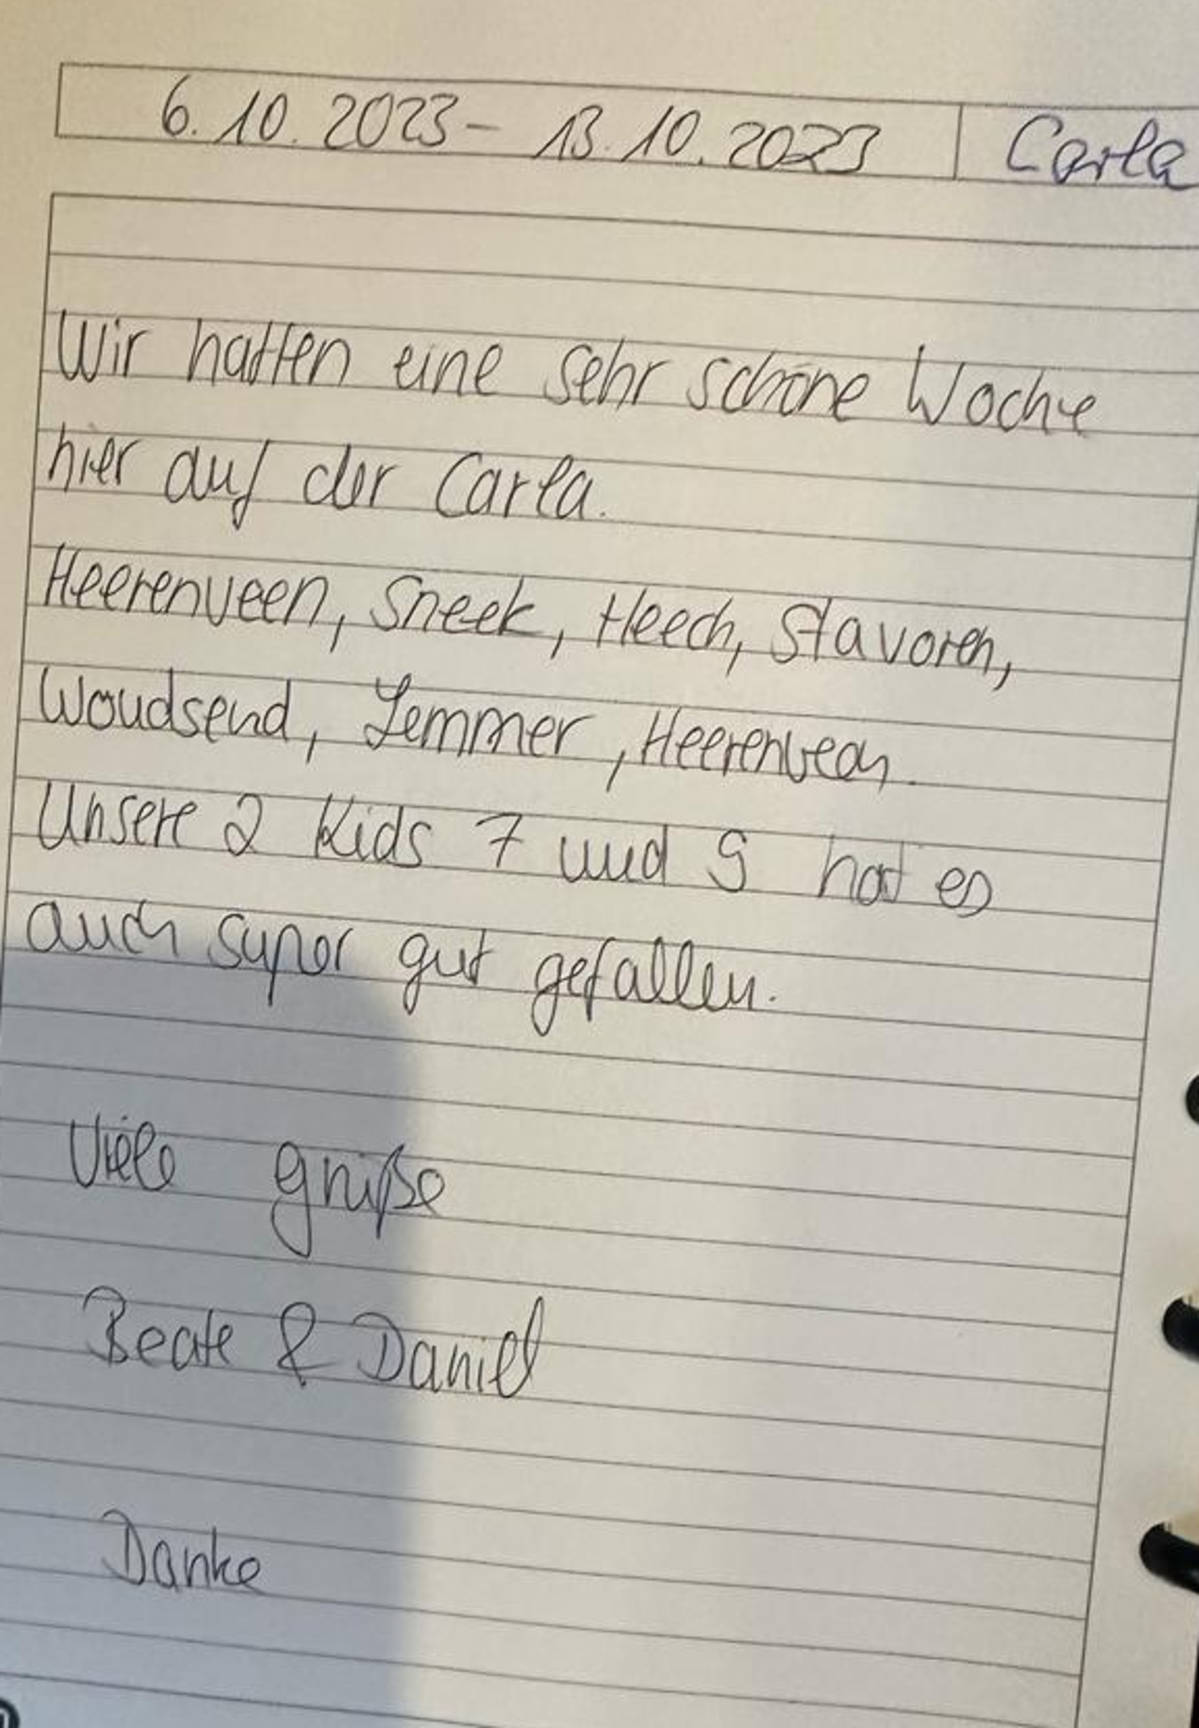 6.10.2023 - 13.10.2023 Carla
Wir hatten eine sehr schöne Woche
hier auf der Carla.
Heerenveen, Sneek, Heech, Stavoren,
Woudsend, Lemmer, Heerenveen.
Unsere 2 Kids 7 und 9 hat es
auch super gut gefallen.
Viele grüße
Beate & Daniel
Danke